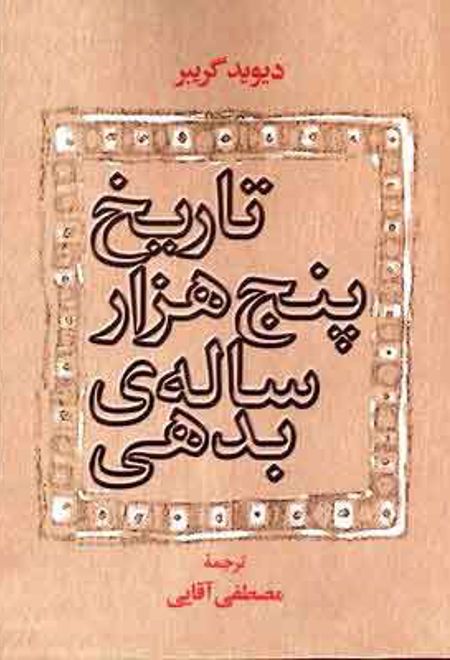 دیوید گریبر
تاریخ
پنج هزار
ساله‌ی
بدهی
ترجمهٔ
مصطفی آقایی